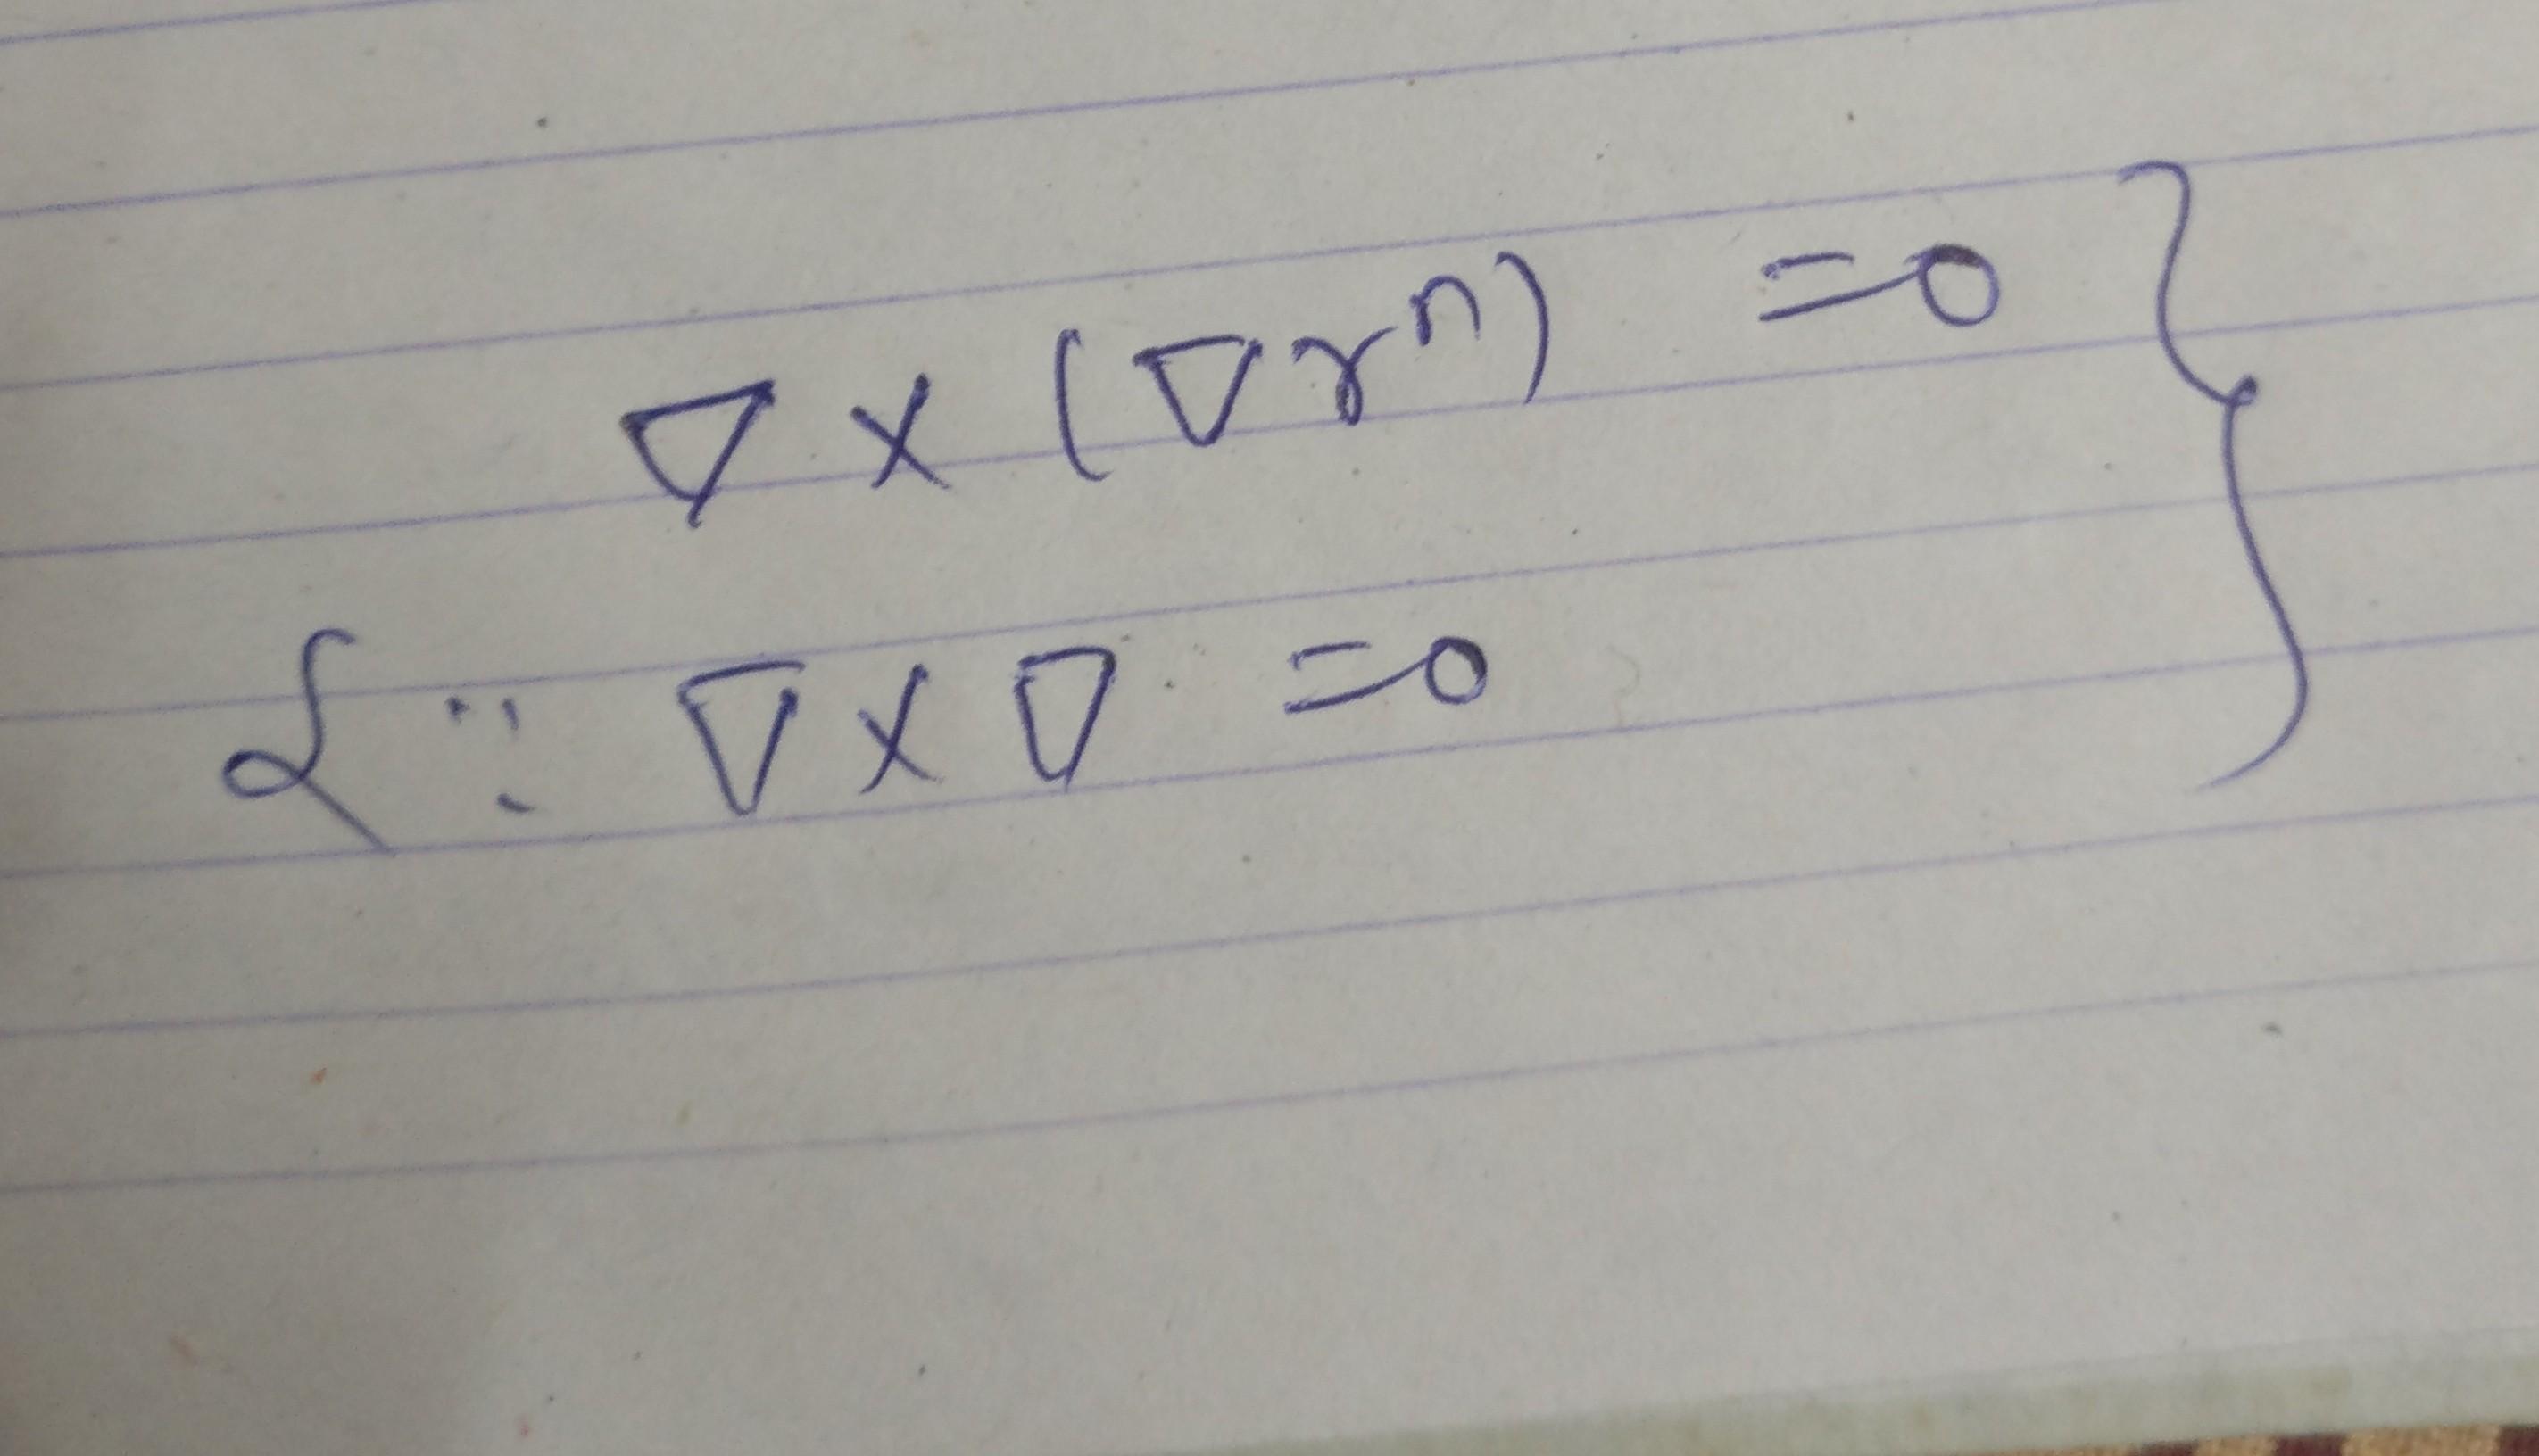 ∇ × (∇rⁿ) =0 }
{ ∵ ∇ × ∇ =0